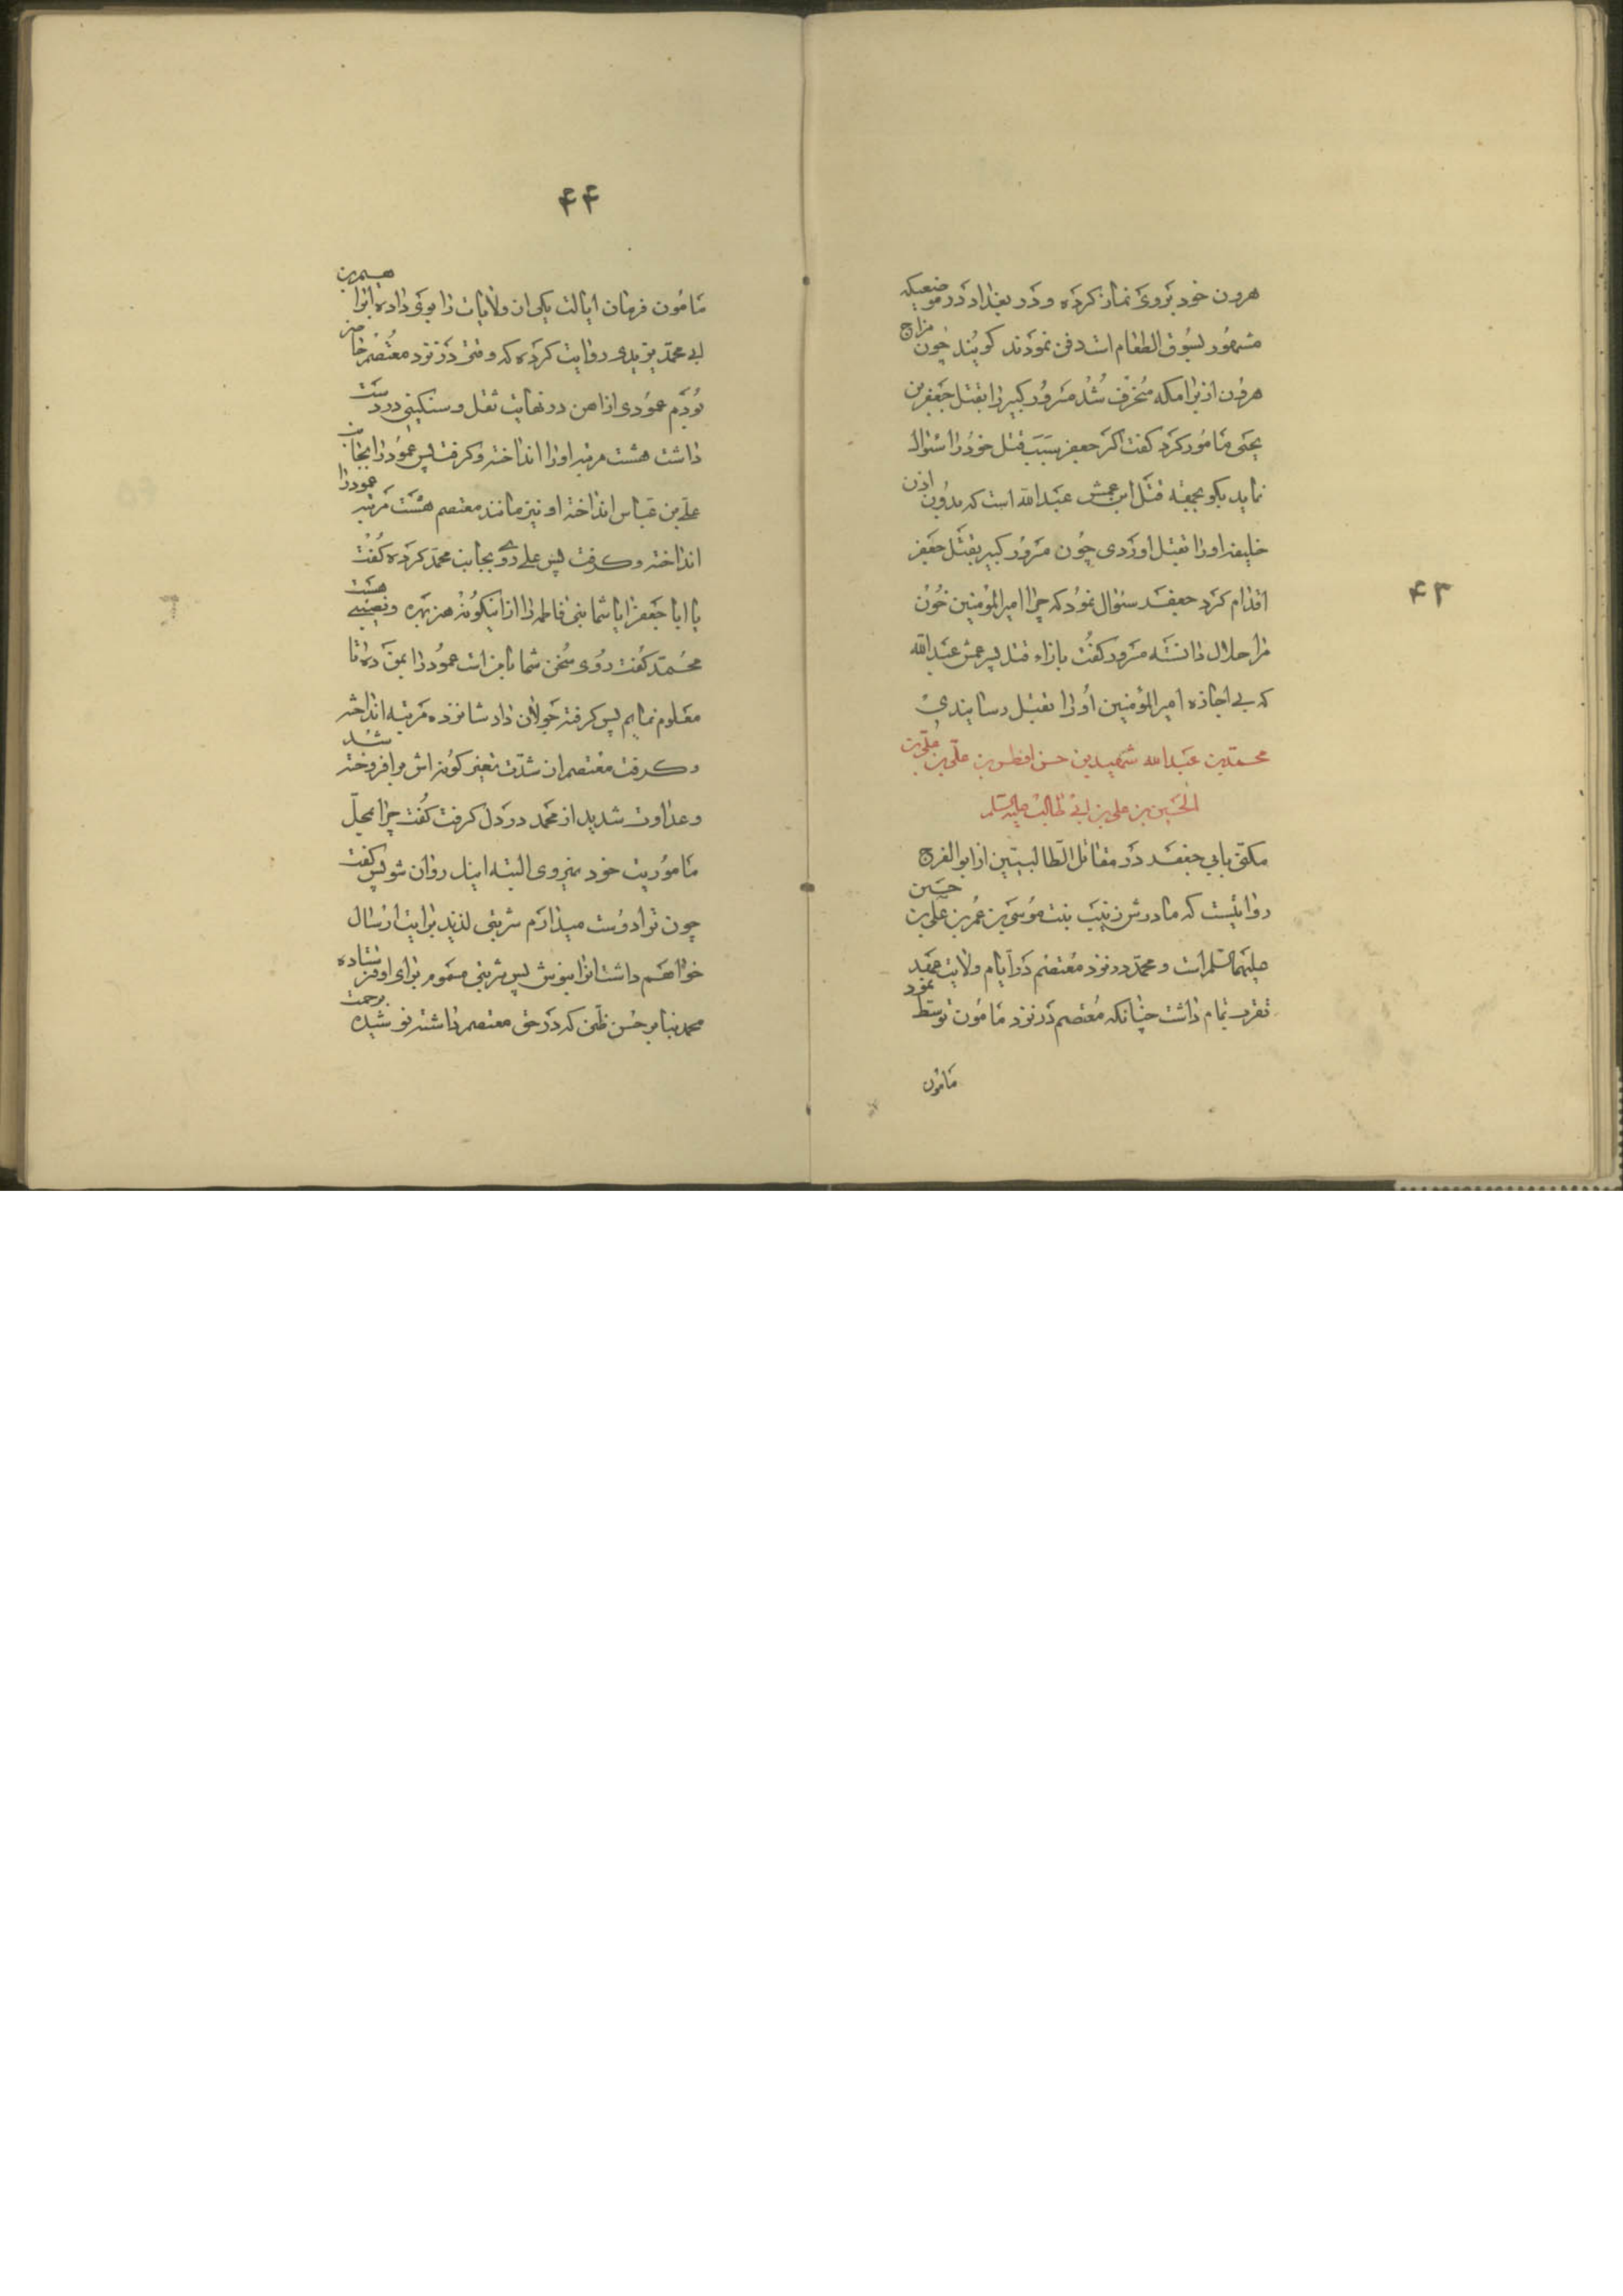 هرون خود بروی نماز کرده و در بغداد در موضعیکه
مشهور بسوق الطعام است دفن نمودند کویند چون مزاج
هرون از برامکه منحرف شد مسرور کبیر را بقتل جعفر بن
یحیی مامور کرد کفت اکر جعفر سبب قتل خود را سئوال
نماید بکو بجهة قتل ابن عمش عبدالله است که بدون اذن
خلیفه او را بقتل اوردی چون مسرور کبیر بقتل جعفر
اقدام کرد جعفر سئوال نمود که چرا امیرالمؤمنین خون
مرا حلال دانسته مسرور کفت بازاء قتل پسر عمش عبدالله
که بی اجازه امیرالمؤمنین او را بقتل رسانیدی
محمد بن عبدالله شهید بن حسن افطس بن علی بن علی بن
الحسین بن علی بن ابی طالب علیه السلم
مکنی بابی جعفر در مقاتل الطالبیین از ابو الفرج
روایتست که مادرش زینب بنت موسی بن عمر بن علی بن حسین
علیهما السلم است و محمد در نزد معتصم در ایام ولایت عهد
تقرب تمام داشت چنانکه معتصم در نزد مامون توسط نمود
مامون
۴۳
۴۴
مامون فرمان ایالت یکی از ولایات را بوی داده ابراهیم بن
ابی محمد یزیدی روایت کرده که وقتی در نزد معتصم حاضر
بودم عمودی از اهن در نهایت ثقل و سنکینی در دست
داشت هشت مرتبه او را انداخته و کرفت پس عمود را بجانب
علی بن عباس انداخته او نیز مانند معتصم هشت مرتبه عمود را
انداخته و کرفت پس علی روی بجانب محمد کرده کفت
یا ابا جعفر ایا شما بنی فاطمه را از اینکونه هنر بهره و نصیبی هست
محمد کفت روی سخن شما با من است عمود را بمن ده تا
معلوم نمایم پس کرفته جولان داد شانزده مرتبه انداخته
و کرفت معتصم از شدت تغییر کونه اش برافروخته شد
و عداوت شدید از محمد در دل کرفت کفت چرا بمحل
ماموریت خود نمیروی البته اینک روان شو پس کفت
چون ترا دوست میدارم شربتی لذیذ برایت ارسال
خواهم داشت انرا بنوش پس شربتی مسموم برای او فرستاده
محمد بنا بر حسن ظنی که در حق معتصم داشته نوشیده برحمت